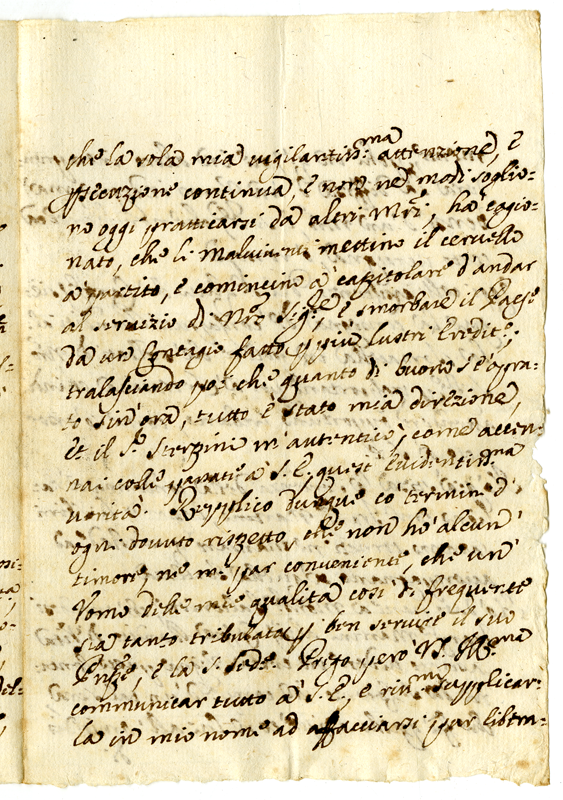 che la sola mia vigilantiss:ma attenzione, e
ꝑsecuzione continua, e non ne modi soglio=
no oggi pratticarsi da altri Mri, ha cagio=
nato, che li Malviventi mettino il cervello
a partito, e comincino à capitolare d'andar
al servizio di Nro Sigre, e smorbare il Paese
da un Contagio fatto ꝑ più lustri Eredit:o;
tralasciando poi che quanto di buono s'è opra=
to sin' ora, tutto è stato mia direzione,
Et il Sr Sterpini m'autenticò, come accen=
nai colle passate à S.E. quest' Evidentiss:ma
verità. Repplico dunque co' termini d'
ogni dovuto rispetto, che non ho alcun'
timore, ne me par conveniente, che un'
Uomo delle mie qualità così di frequente
sia tanto tribulata ꝑ ben servire il suo
Pnpe, e la S. Sede. Prego però VS. Illma
communicar tutto à S.E., e rivmte supplicar=
la in mio nome ad affacciarsi par libera=